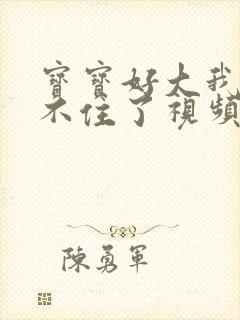 寶寶好大我
不住了視頻
陳勇軍